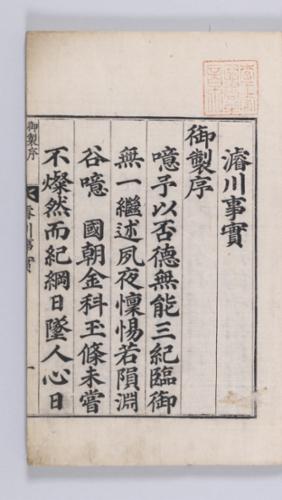 濬川事實
御製序
噫予以否德無能三紀臨御
無一繼述夙夜懍惕若隕淵
谷噫 國朝金科玉條未嘗
不燦然而紀綱日墜人心日
御製序
濬川事實
一